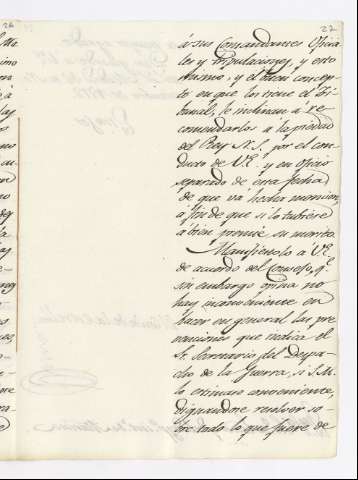 22
á sus Comandantes Oficia
les y tripulaciones, y esto
mismo, y el buen concep
to en que los tiene el Tri
bunal, le inclinan á re
comendarlos á la piedad
del Rey N. S. por el con
ducto de V.E. y en oficio
separado de esta fecha,
de que vá hecha mencion,
á fin de que si lo tubiere
á bien premie su merito.
Manifiestolo á V.E.
de acuerdo del Consejo, q.e
sin embargo opina no
hay inconveniente en
hacer en general las pre
venciones que indica el
Sr. Secretario del Despa
cho de la Guerra, si S.M.
lo estimare conveniente,
dignandose resolver so
bre todo lo que fuere de